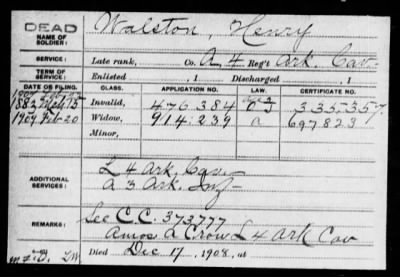 DEAD
NAME OF SOLDIER: Walston, Henry
SERVICE: Late rank, Co. A, 4 Reg't Ark. Cav-
TERM OF SERVICE: Enlisted , 1 Discharged , 1
DATE OF FILING. CLASS. APPLICATION NO. LAW. CERTIFICATE NO.
1883 Invalid, 476384 335357.
1909 Feb 20 Widow, 914.239 a 697823
Minor,
ADDITIONAL SERVICES: L 4 Ark. Cav-
a 3 Ark. Inf-
REMARKS: See C.C. 373777
Amos A Crow L 4 Ark Cav
Died Dec 17, 1908, at